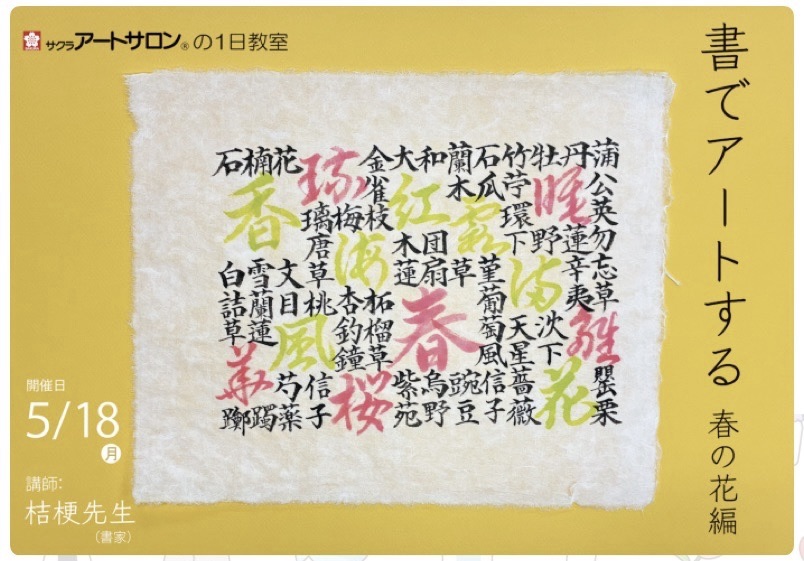 サクラアートサロン®の1日教室
書でアートする
春の花編
蒲公英勿忘草雛罌栗
丹睡蓮辛夷
牡野沈下花
竹苧環下満天星薔薇
石瓜菫葡萄風信子
蘭木霞草豌豆
和団扇烏野
大紅木蓮春紫苑
金雀枝柘榴草桜
梅海杏釣鐘
琉璃唐草桃信子
花文目風芍薬
楠香雪蘭蓮躅
石白詰草華躑
開催日
5/18
月
講師:
桔梗先生
(書家)